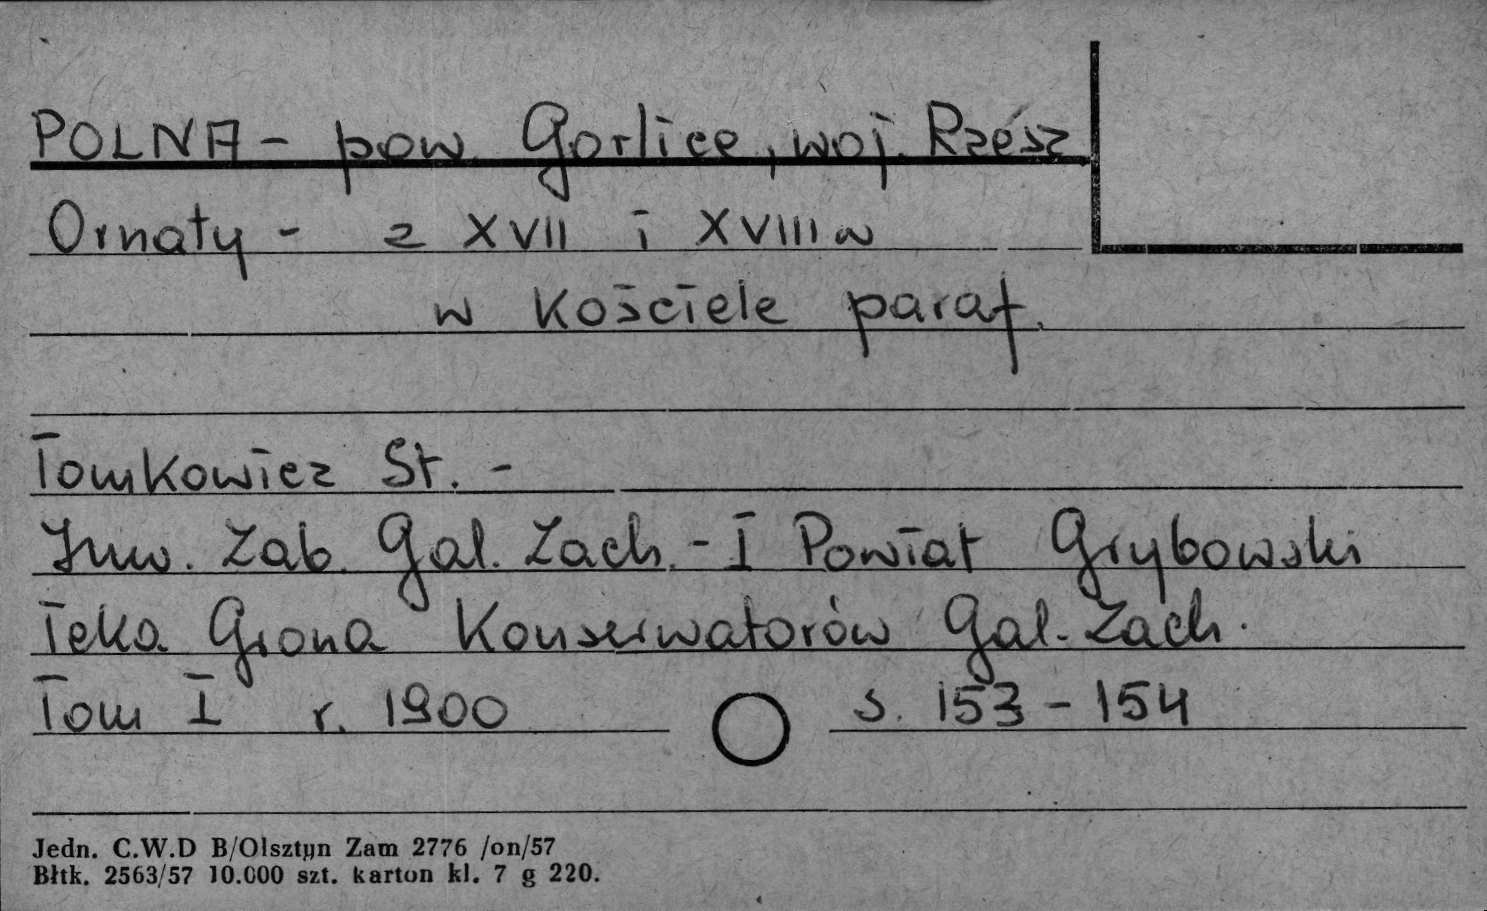 POLNA - pow. Gorlice, woj. Rzesz.
Ornaty - z XVII i XVIII w
w kościele paraf.
Tomkowicz St. -
Inw. Zab. Gal. Zach. - I Powiat Grybowski
Teka Grona Konserwatorów Gal. Zach.
Tom I r. 1900 s. 153 - 154
Jedn. C.W.D B/Olsztyn Zam 2776 /on/57
Błtk. 2563/57 10.000 szt. karton kl. 7 g 220.